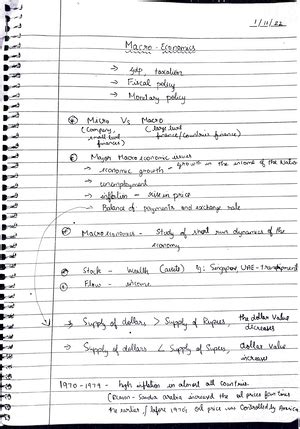 1/11/22
Macro-Economics
→ GDP, taxation
→ Fiscal policy
→ Monetary policy
Micro Vs Macro
(Company, (large level
small level finance/countries finance)
finances)
Major Macroeconomic issues
→ economic growth - growth in the income of the Nation
→ unemployment
→ inflation - rise in price
→ Balance of payments and exchange rate
Macroeconomics - Study of short run dynamics of the
economy
Stock - Wealth (assets) Eg: Singapore, UAE - Transhipment
Flow - income
→ Supply of dollars > Supply of Rupees, the dollar value
decreases
→ Supply of dollars < Supply of Rupees, dollar value
increases
1970-1979 - high inflation in almost all countries
(Reason - Saudia arabia increased the oil prices four times
the earlier / before 1970s oil price was controlled by America